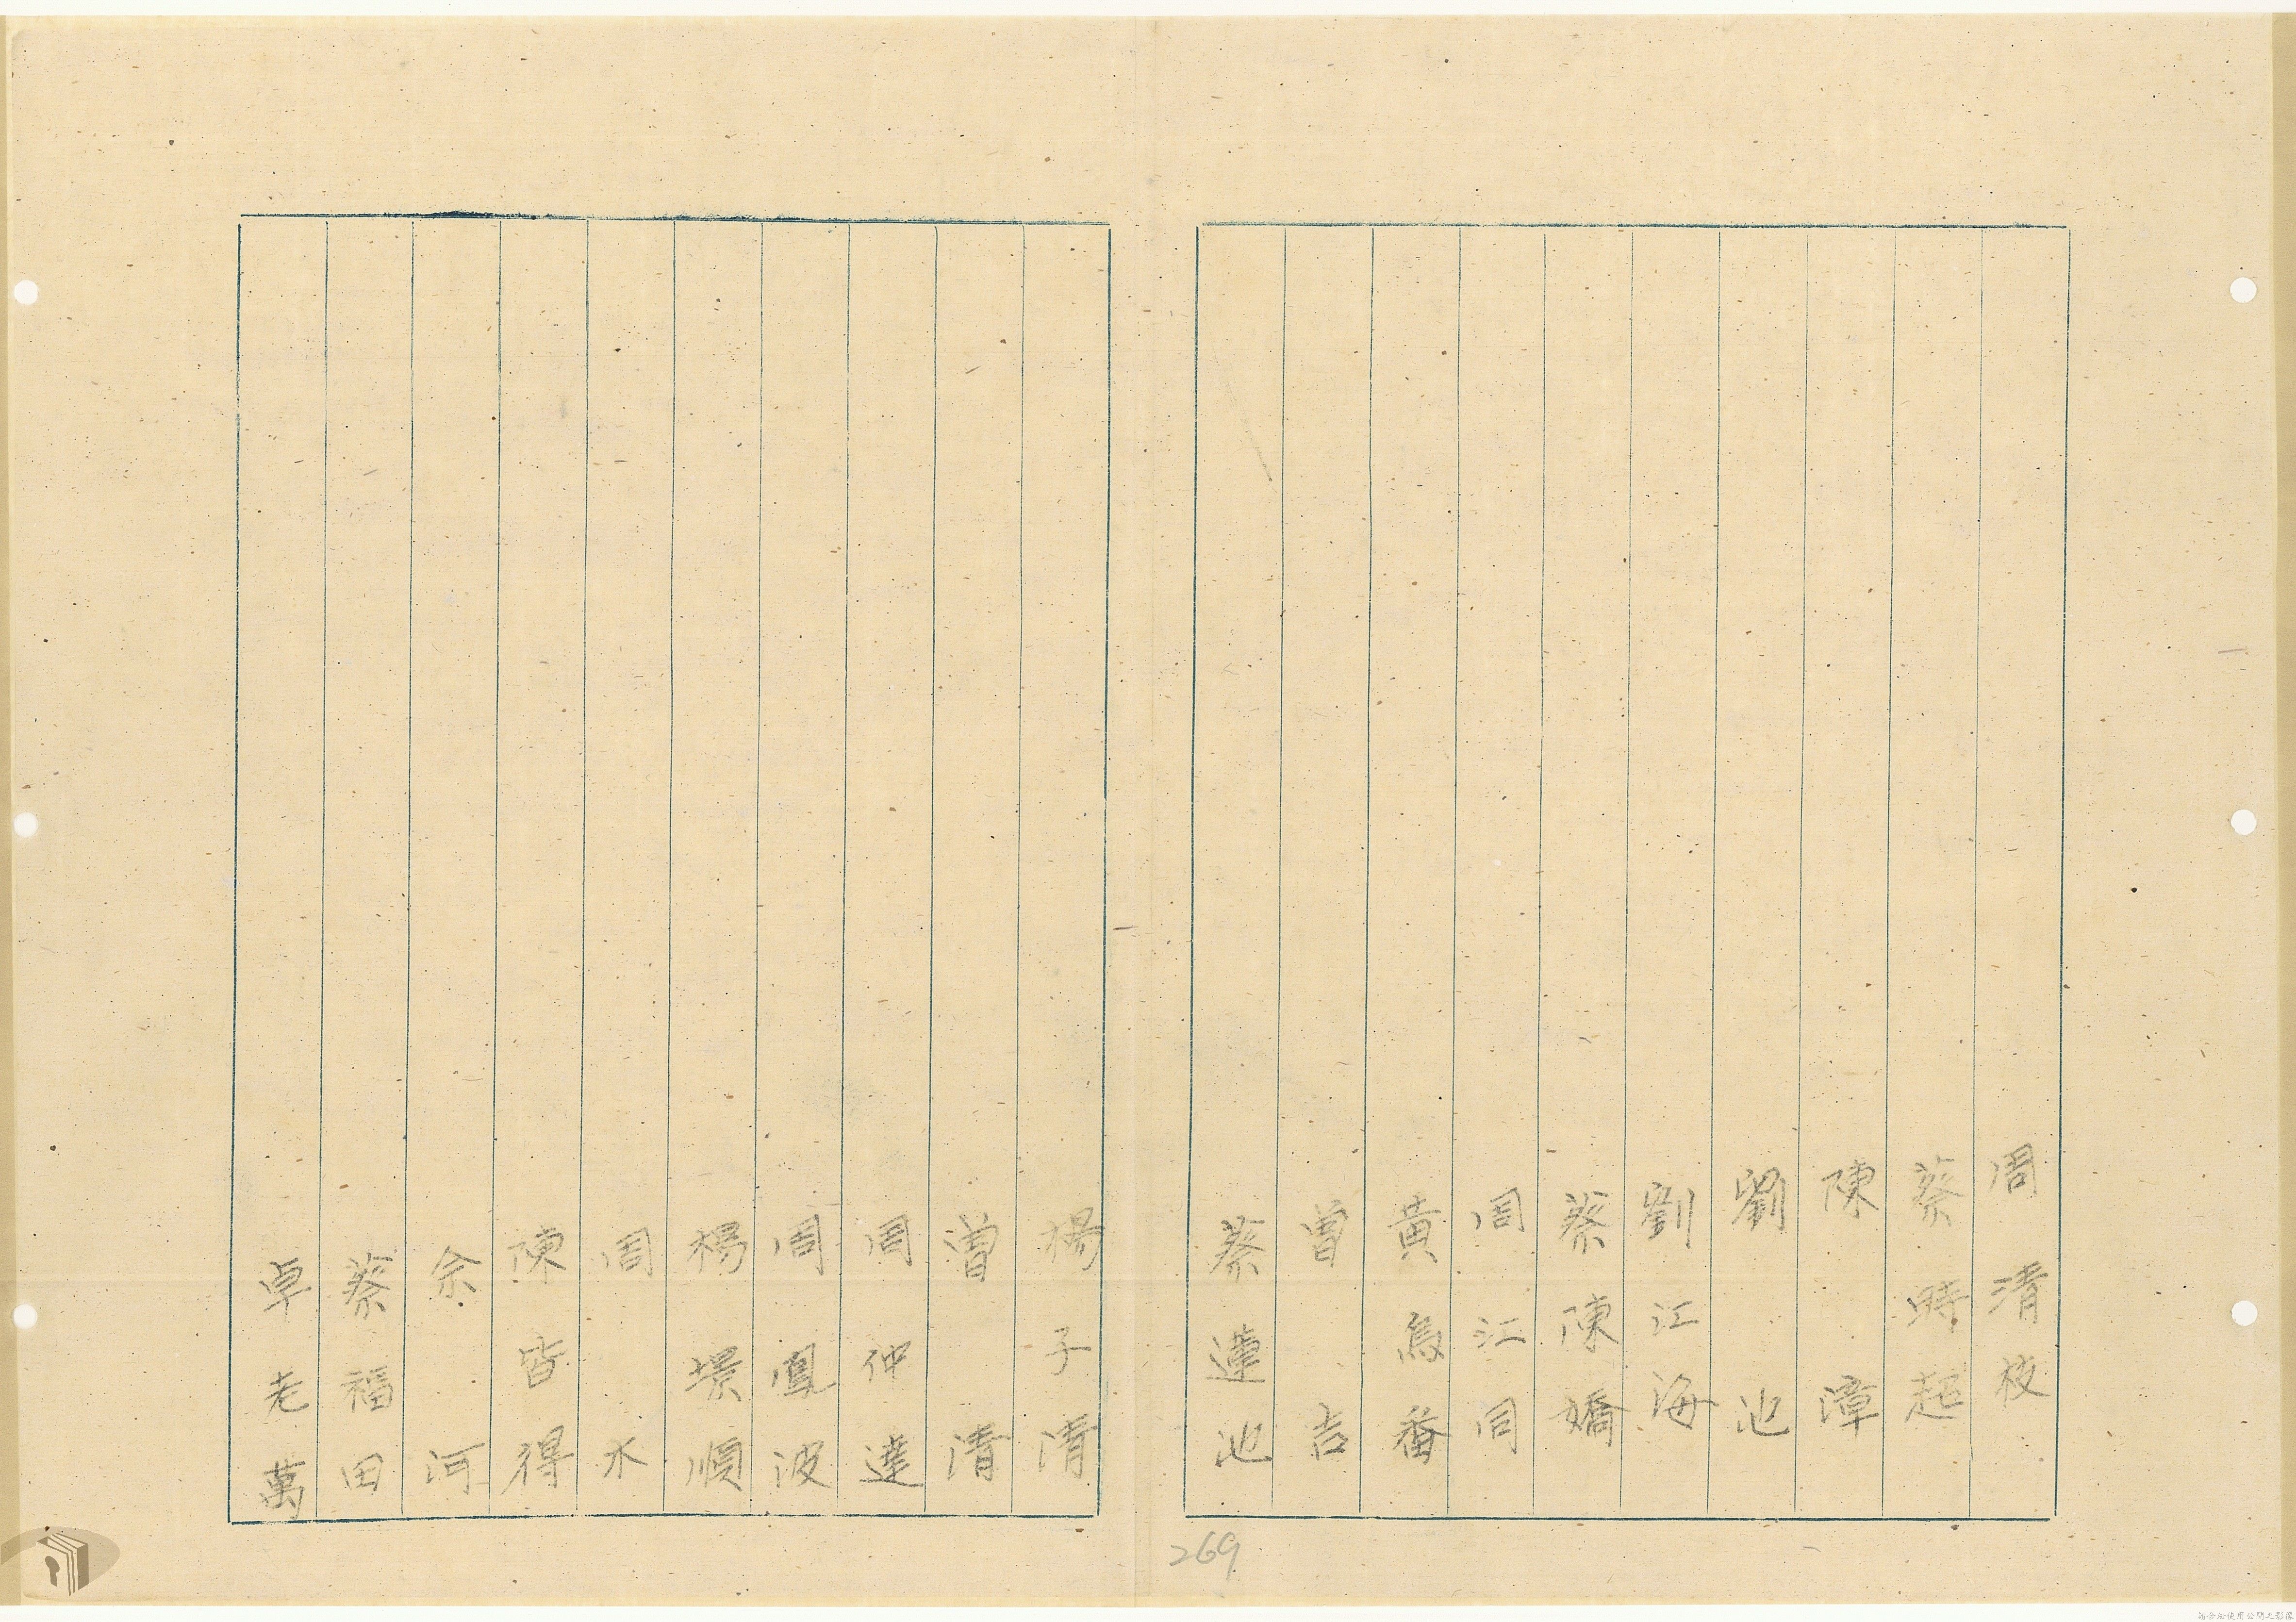 周清枝
蔡時起
陳漳
劉池
劉江海
蔡陳嬌
周江同
黃烏番
曾吉
蔡蓮池
楊子清
曾清
周仲達
周鳳波
楊環順
周水
陳皆得
余河
蔡福田
卓老萬
269
請合法使用公開之影像